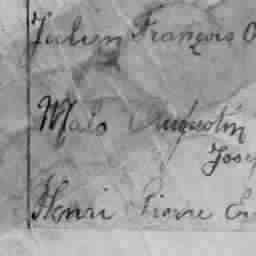 Julien François
Malo Augustin
Henri Pierre